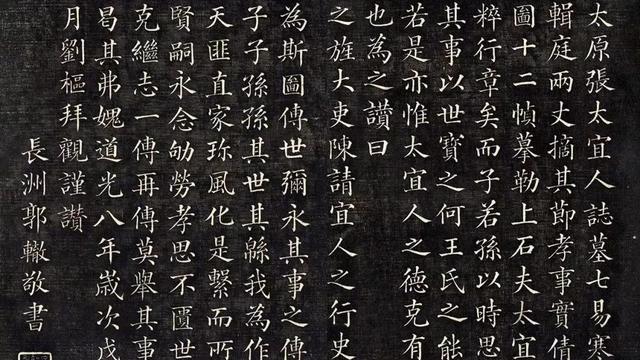 太原張太宜人誌墓七易寒
輯庭兩丈摘其節孝事實倩
圖十二幀摹勒上石夫太宜
粹行章矣而子若孫以時思
其事以世寶之何王氏之能
若是亦惟太宜人之德克有
也為之讚曰
之旌大吏陳請宜人之行史
為斯圖傳世彌永其事之傳
子子孫孫其世其緜我為作
天匪直家珎風化是繫而所
賢嗣永念劬勞孝思不匱世
克繼志一傳再傳莫舉其事
曷其弗媿道光八年歲次戊
月劉樞拜觀謹讚
長洲郭轍敬書